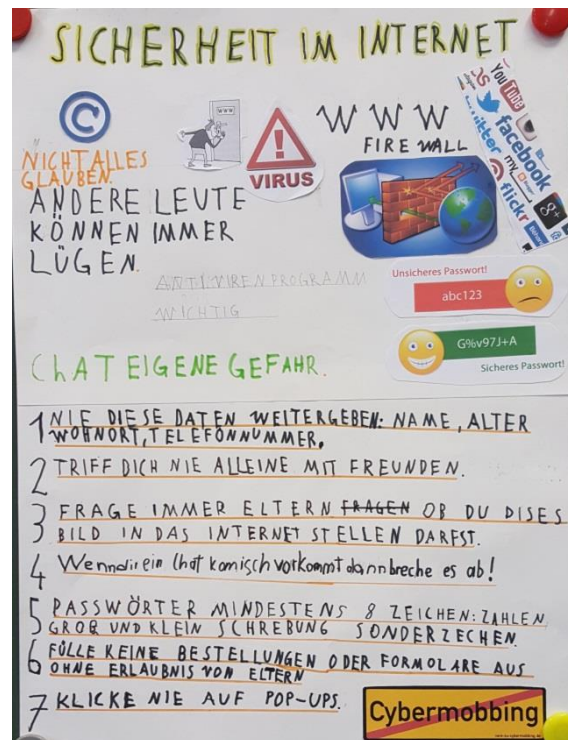 SICHERHEIT IM INTERNET
©
WWW
VIRUS
W W W
FIRE WALL
YOU TUBE
facebook
twitter
my
flickr
g+
NICHT ALLES
GLAUBEN.
ANDERE LEUTE
KÖNNEN IMMER
LÜGEN.
ANTIVIRENPROGRAMM
WICHTIG
Unsicheres Passwort!
abc123
G%v97J+A
Sicheres Passwort!
ChAT EIGENE GEFAHR.
1 NIE DIESE DATEN WEITERGEBEN: NAME, ALTER
WOHNORT, TELEFONNUMMER.
2 TRIFF DICH NIE ALLEINE MIT FREUNDEN.
3 FRAGE IMMER ELTERN FRAGEN OB DU DISES
BILD IN DAS INTERNET STELLEN DARFST.
4 Wenn dir ein Chat komisch vorkommt dann breche es ab!
5 PASSWÖRTER MINDESTENS 8 ZEICHEN: ZAHLEN,
GROß UND KLEIN SCHREBUNG SONDERZECHEN.
6 FÜLLE KEINE BESTELLUNGEN ODER FORMOLARE AUS
OHNE ERLAUBNIS VON ELTERN
7 KLICKE NIE AUF POP-UPS.
Cybermobbing